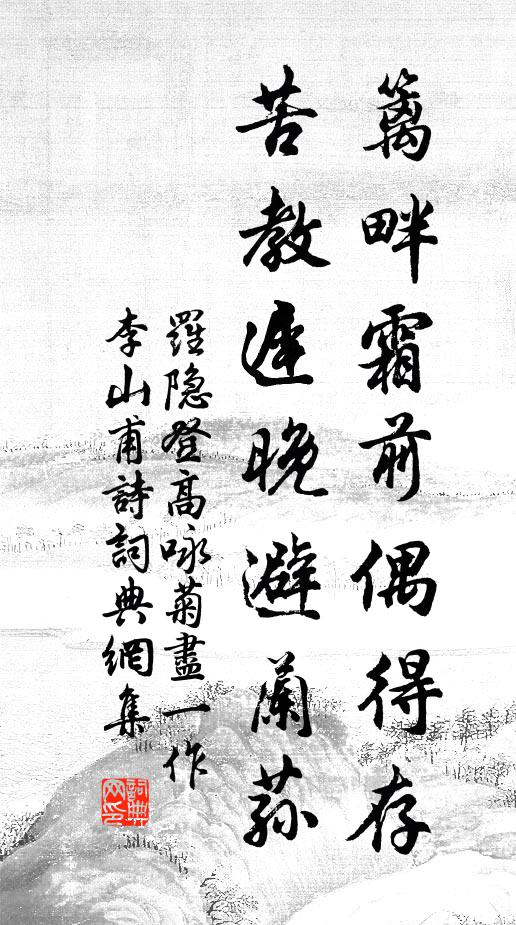 籬畔霜前偶得存
苦教遲晚避蘭蓀
羅隐登高咏菊盡一作
李山甫詩詞典網集
詞典網印